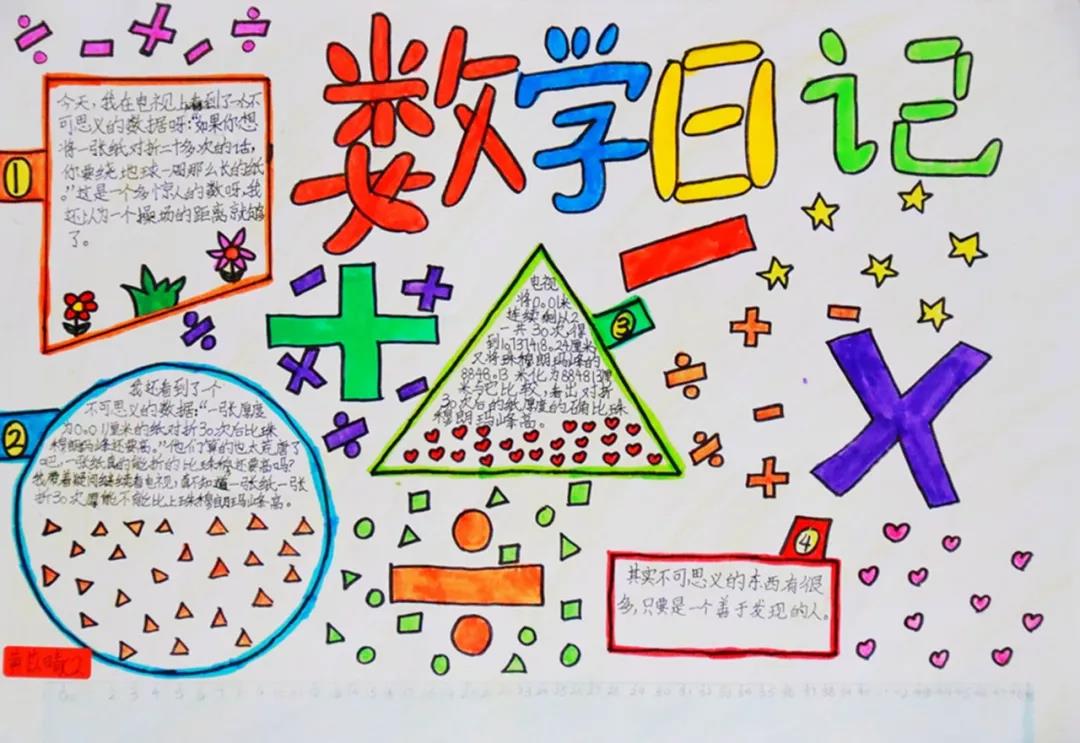 数学日记
1
今天，我在电视上看到了一个不
可思义的数据呀：“如果你想
将一张纸对折二十多次的话，
你要绕地球一周那么长的纸
。”这是一个多惊人的数呀，我
还以为一个操场的距离就够
了。
2
我还看到了个
不可思义的数据：“一张厚度
为0.01厘米的纸对折30次后比珠
穆朗玛峰还要高。”他们算的也太荒唐了
吧，一张纸真的能折的比珠穆还要高吗？
我带着疑问继续看电视，真不知道一张纸一张
折30次厚能不能比上珠穆朗玛峰高。
3
电视
将0.01米
连续剩以2
一共30次，得
到10737418.24厘米
又将珠穆朗玛峰的
8848.13米化为884813厘
米与它比较，看出对折
30次后的纸厚度的确比珠
穆朗玛峰高。
4
其实不可思义的东西有很
多，只要是一个善于发现的人。